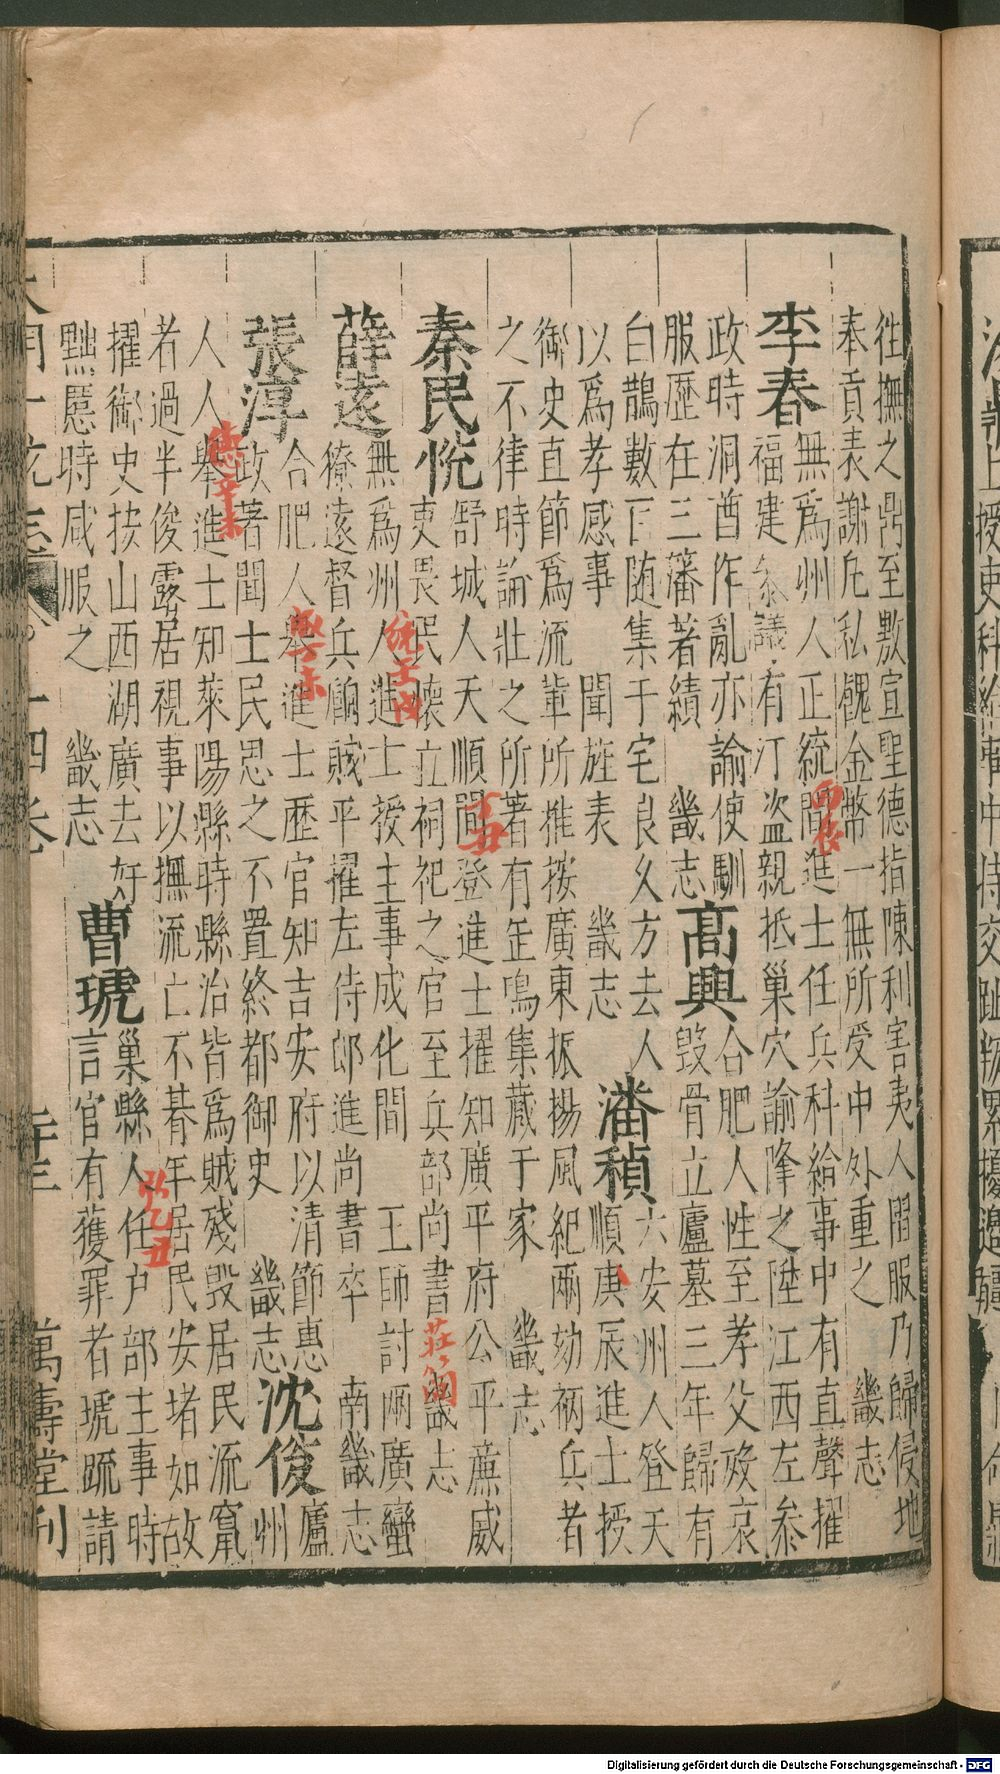 徃撫之鼎至敷宣聖德指陳利害夷人閭服乃歸侵地
奉貢表謝凢私餽金幣一無所受中外重之　畿志
李春　無爲州人正統間進士任兵科給事中有直聲擢
福建叅議有汀盗親抵巢穴諭降之陞江西左叅
政時洞酋作亂亦諭使馴
服歷在三藩著績　畿志
高興　合肥人性至孝父歿哀
毀骨立廬墓三年歸有
白鵲數百随集于宅良乆方去人
以爲孝感事　聞旌表　畿志
潘稹　六安州人登天
順庚辰進士授
御史直節爲流輩所推按廣東振揚風紀兩劾柄兵者
之不律時論壯之所著有歪鳴集藏于家　畿志
秦民悅　舒城人天順間登進士擢知廣平府公平廉威
吏畏民懷立祠祀之官至兵部尚書　畿志
薛遠　無爲州人進士授主事成化間　王師討兩廣蠻
獠遠督兵餉賊平擢左侍郎進尚書卒　南畿志
張淳　合肥人舉進士歷官知吉安府以清節惠
政著聞士民思之不置終都御史　畿志
沈俊　廬
州
人人舉進士知萊陽縣時縣治皆爲賊殘毁居民流竄
者過半俊露居視事以撫流亡不朞年居民安堵如故
擢御史按山西湖廣去奸
黜慝時咸服之　畿志
曹琥　巢縣人任户部主事時
言官有獲罪者琥疏請
萬壽堂刋
丙辰
丁丑
統壬戌
德辛未
弘乙丑
Digitalisierung gefördert durch die Deutsche Forschungsgemeinschaft - DFG